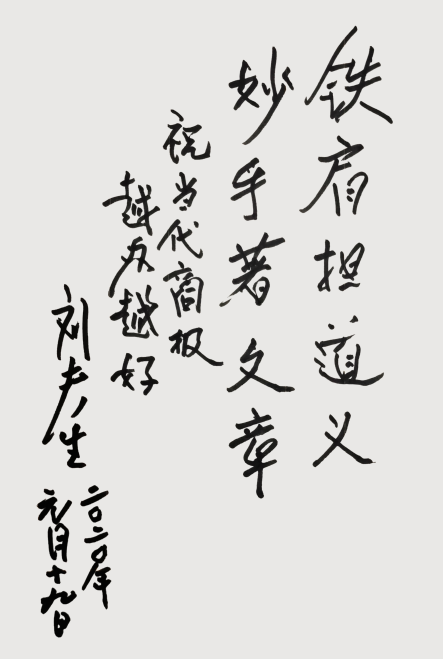 铁肩担道义
妙手著文章
祝当代商报
越办越好
刘夫生
二〇二〇年
元月十九日